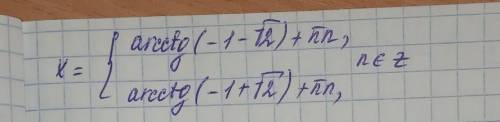 x = { arcctg(-1-√2)+πn,
arcctg(-1+√2)+πn, n∈z